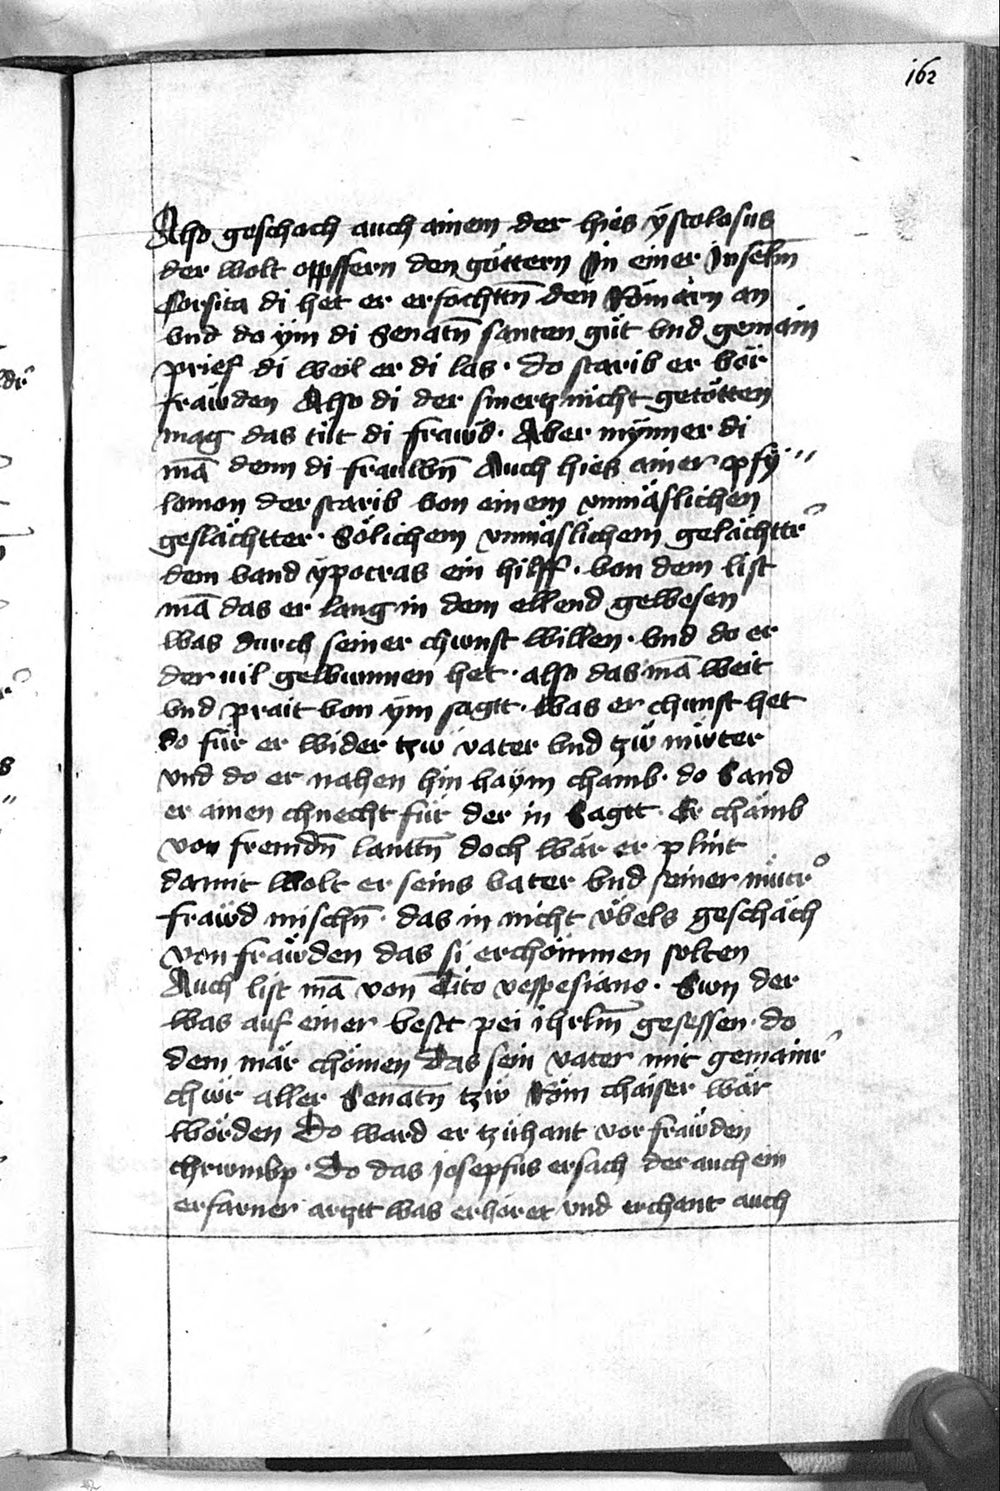 162
Also geschach auch ainem der hies ÿscolosus
der wolt oppffern den göttern In einer Inselm̄
Corsica di het er erfochttn̄ den Römärn an
vnd do ÿm di Senatn̄ santen güt vnd gemain
prief di weil er di las · do starib er vör
fräwden Also di der smertz nicht getötten
mag das tüt di frawd · Aber mynner di
mā denn di frauwn̄ Auch hies ainer opfÿ
lomon der starib von einem vnmäslichen
geslächtter · Sölichem vnmäslichem gelächttr
dem vand ÿpocras ein hilff · von dem list
mā das er lang in dem ellend gewesen
was durch seiner chunst willen · vnd do er
der uil gewunnen het · also das mā weit
vnd prait von ÿm sagtt · was er chunst het
do für er wider tzw vater vnd tzw müter
vnd do er nahen hin haÿm chamb · do Sand
er ainen chnecht für der in Sagtt · Er chämb
von fremdn̄ lanttn̄ doch wär er plint
damit wolt er seins vater vnd seiner mütr
frawd mischn̄ · das in nicht vbels geschäch
von fräwden das si erchömmen solten
Auch list mā von Tito vespesiano · Swn der
was auf einer vestt pei ihrlm̄ gesessen · do
dem mär chömen das sein vater mit gemainr
chür aller Senatn̄ tzw Röm chaiser wär
wörden Do ward er tzühant vor fräwden
chrwmbp · Do das josepfus ersach der auch ein
erfarner artztt was erhöret vnd erchant auch